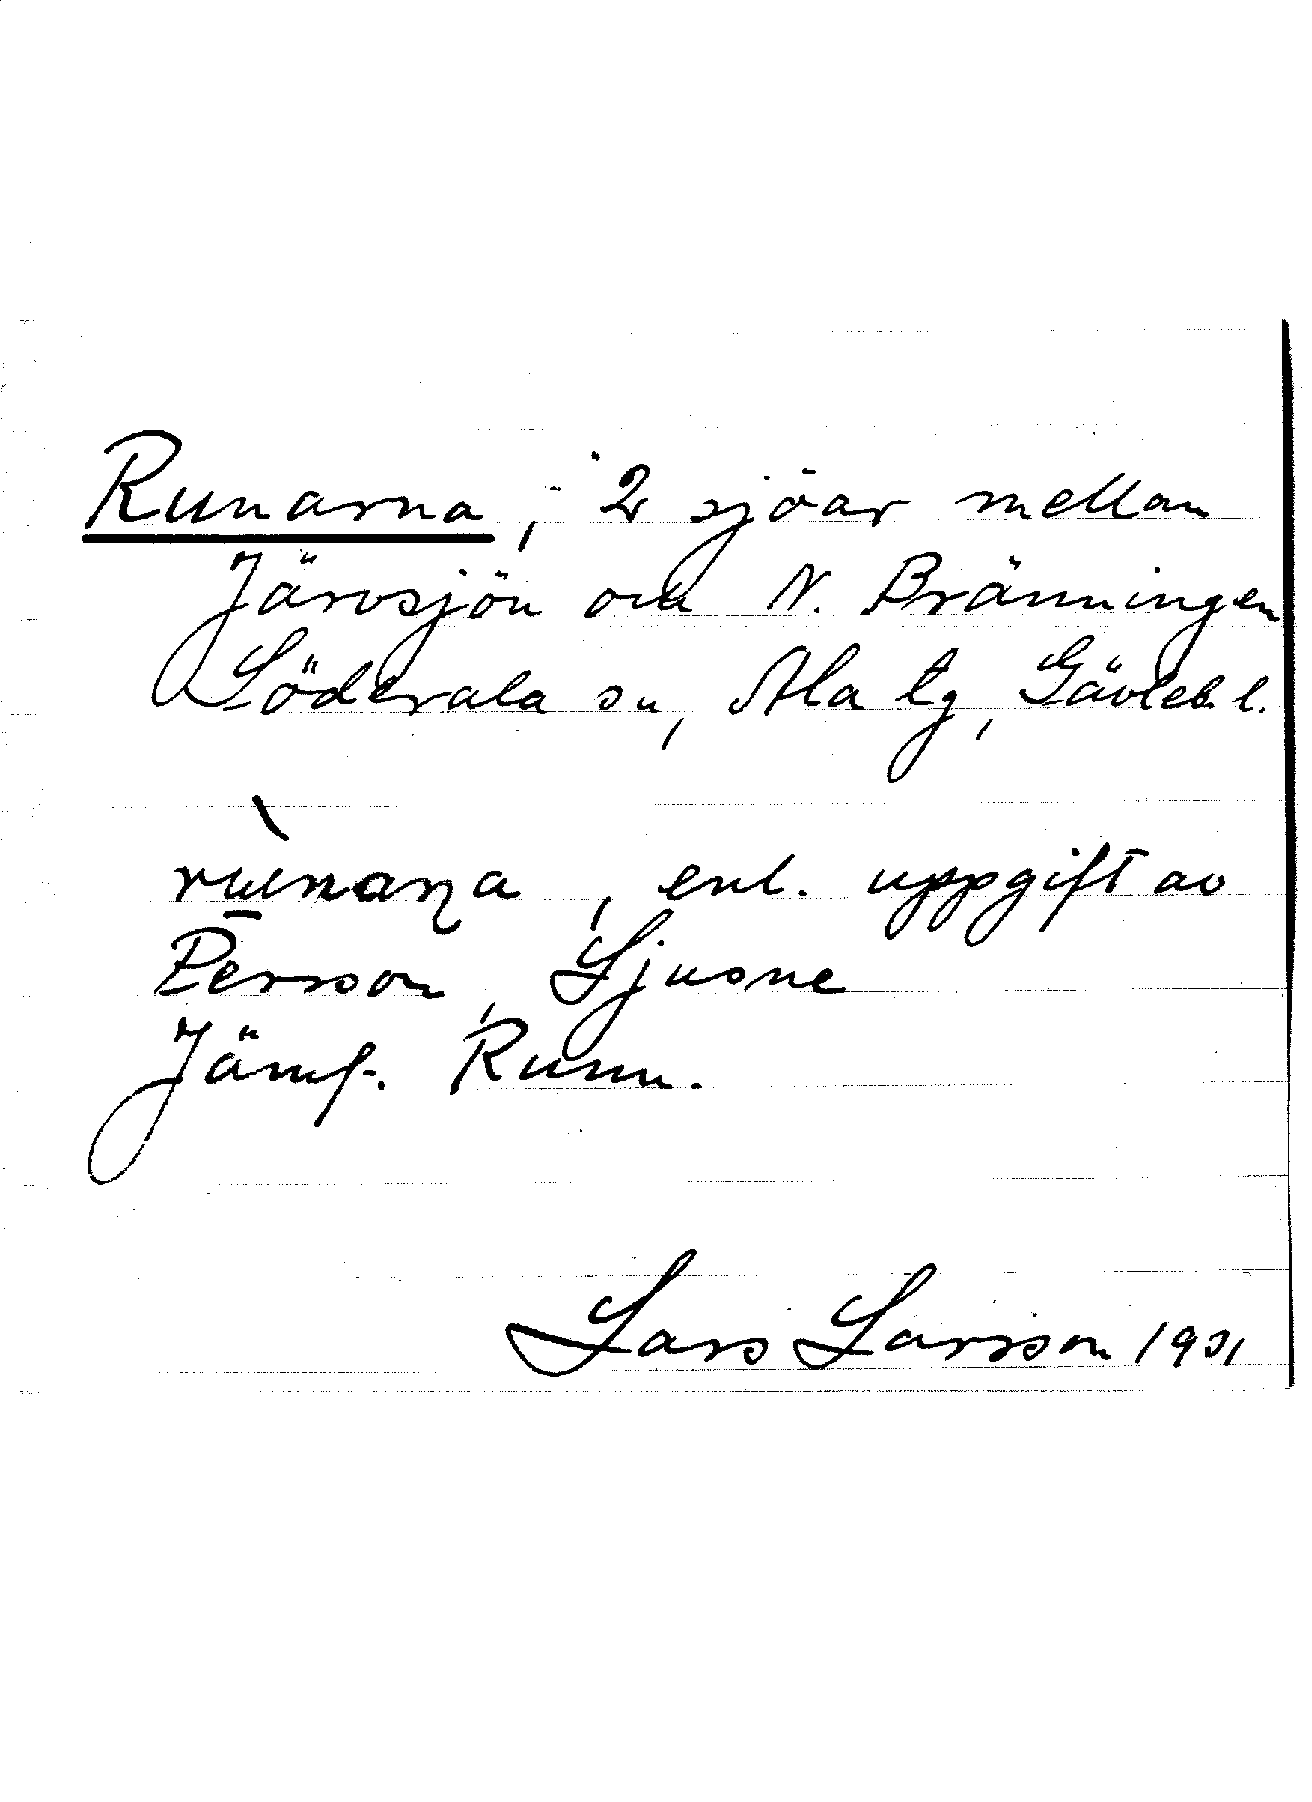 Runarna, 2 sjöar mellan
Järvsjön och N. Bränningen
Söderala sn, Ala tg, Gävleb. l.
enl. uppgift av
Persson, Ljusne
Jämf. Runn.
Lars Larsson 1931